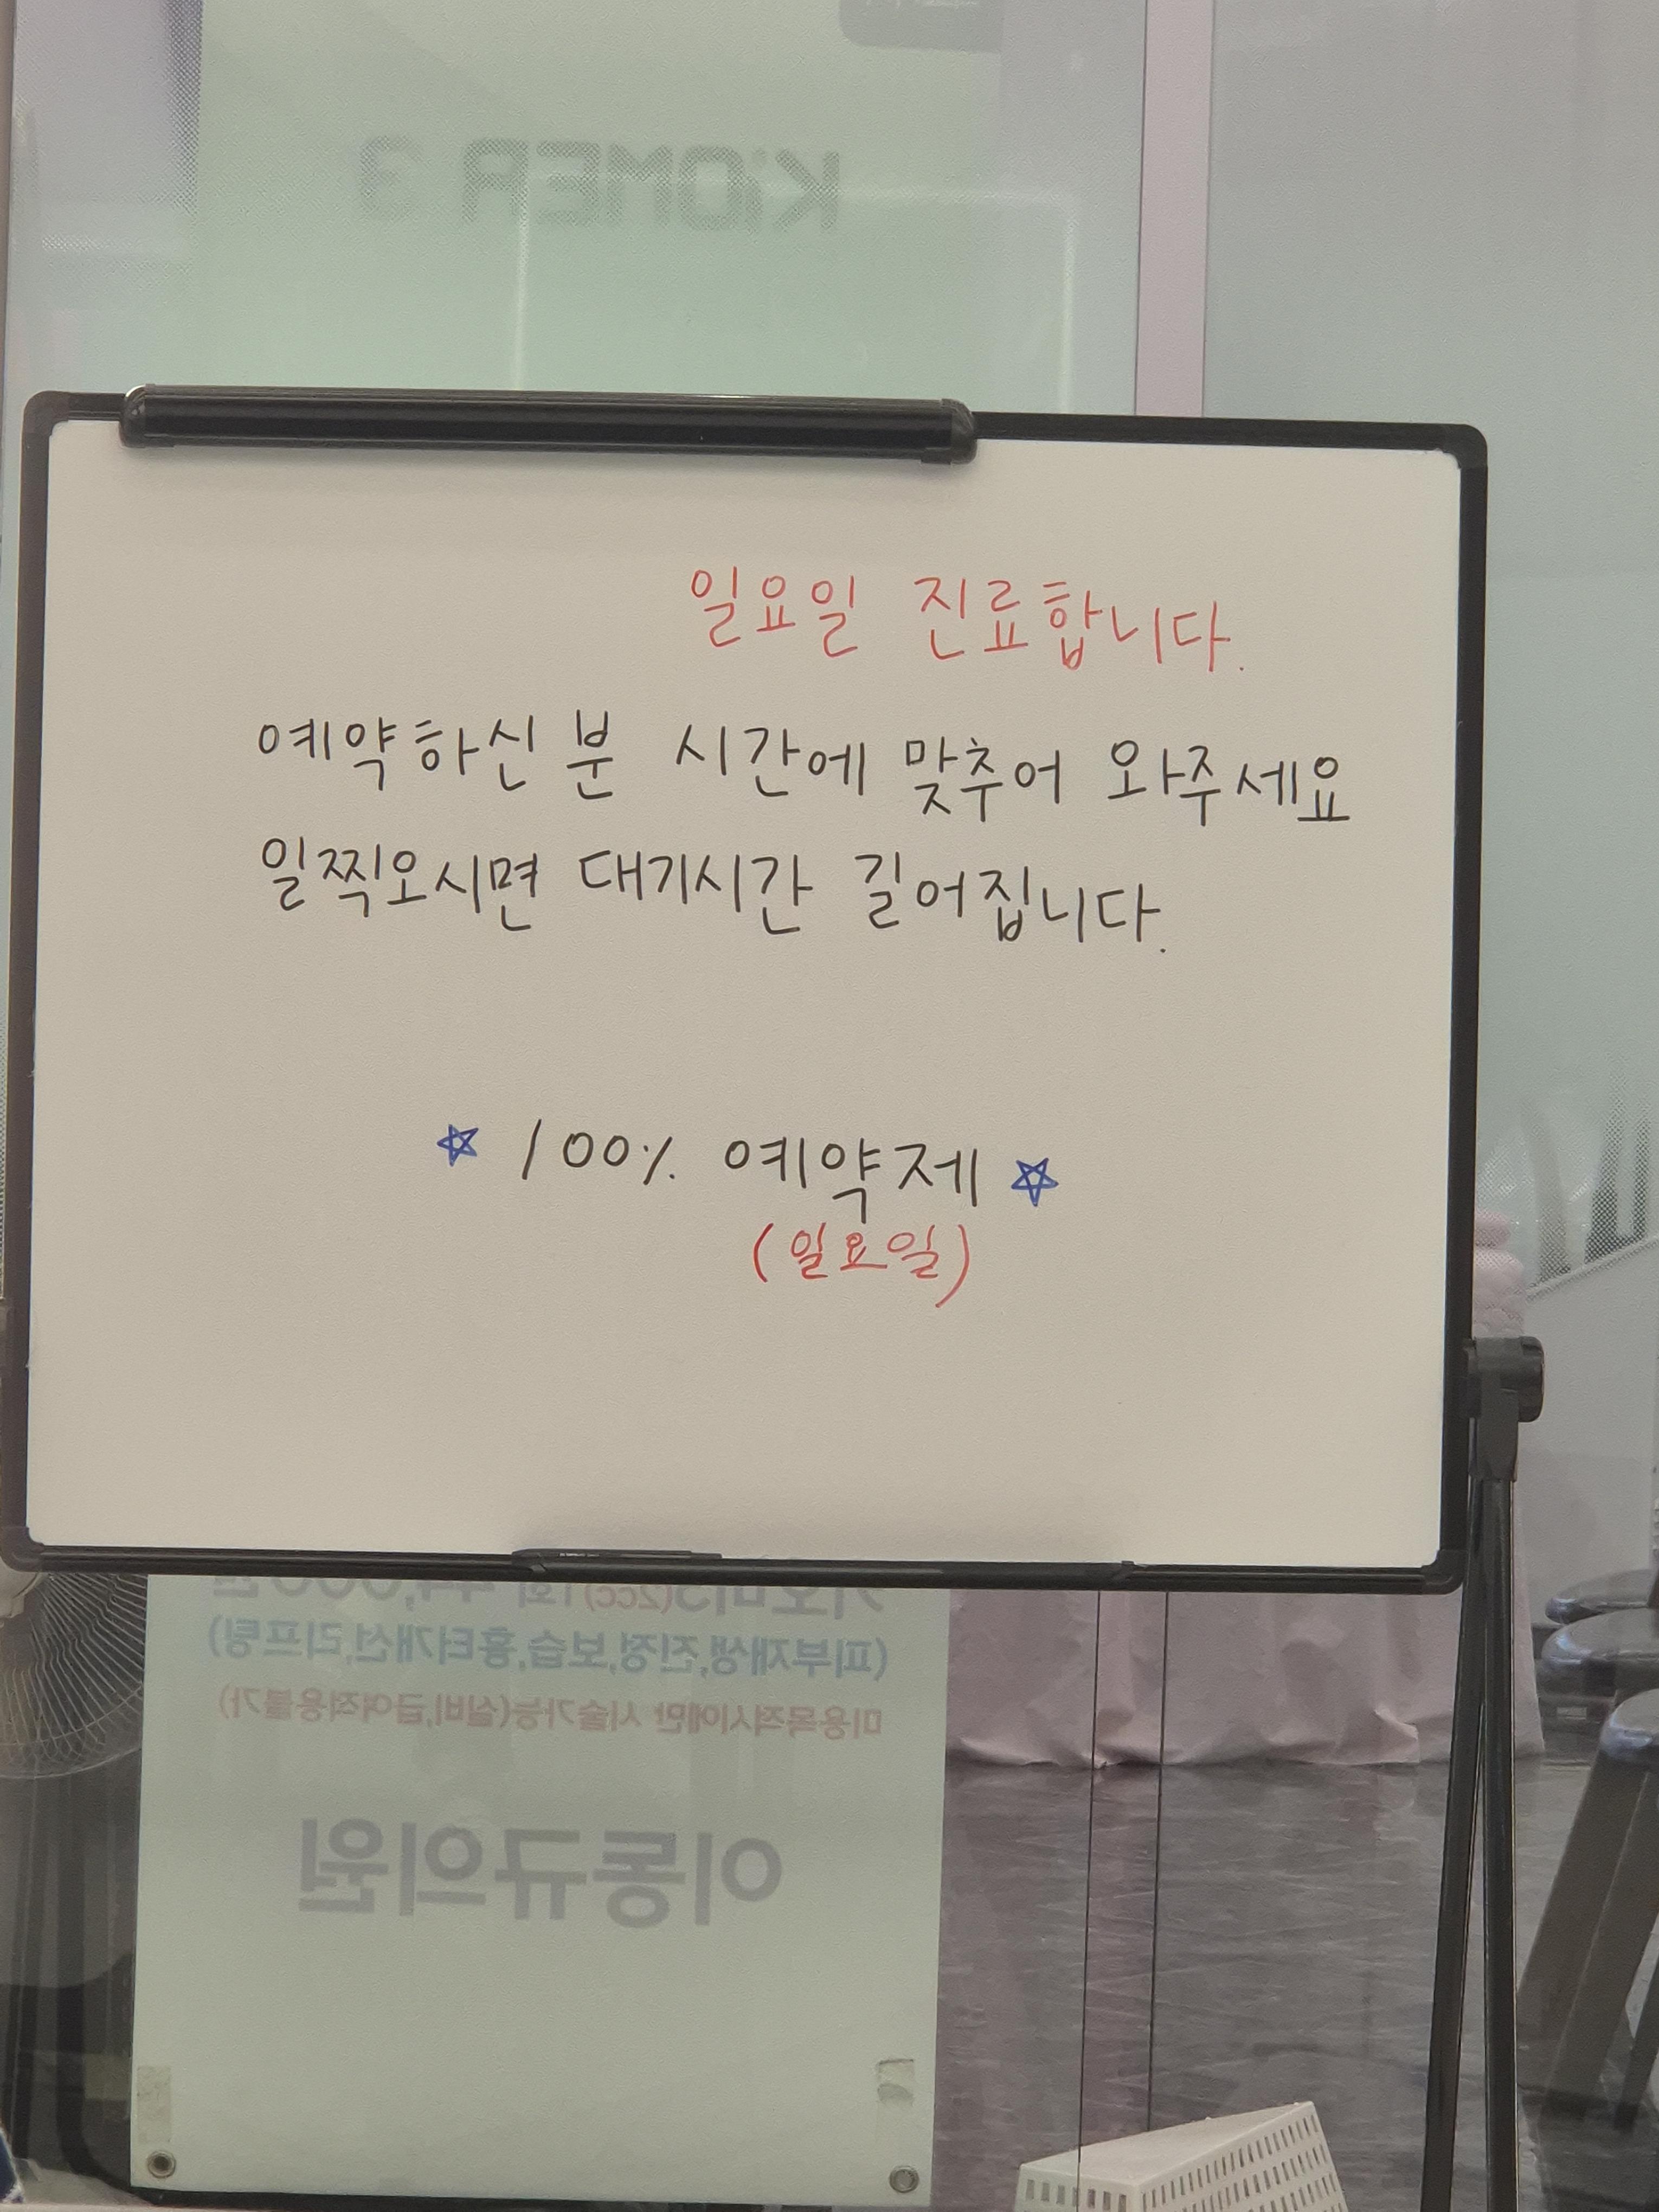 K'OMER 3
일요일 진료합니다.
예약하신 분 시간에 맞추어 와주세요
일찍오시면 대기시간 길어집니다.
☆ 100% 예약제 ☆
(일요일)
(피부재생,진정,보습,흉터개선,리프팅)
미용목적시에만 시술가능(실비,급여적용불가)
이동규의원